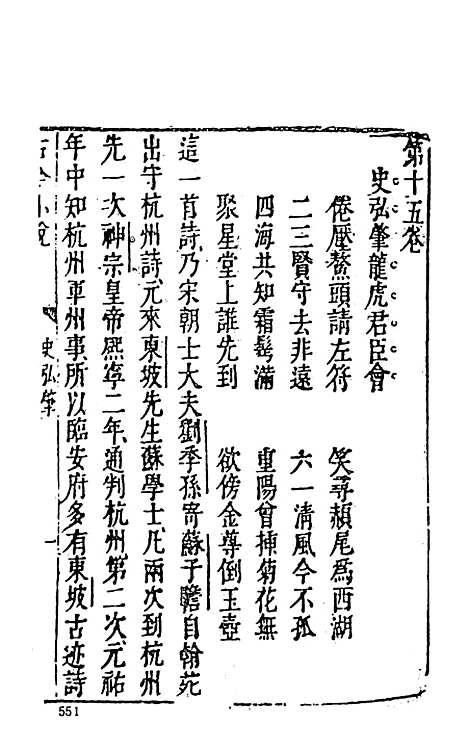 第十五卷
史弘肇龍虎君臣會
倦壓鰲頭請左符　笑尋頳尾為西湖
二三賢守去非遠　六一清風今不孤
四海共知霜鬂滿　重陽曾揷菊花無
聚星堂上誰先到　欲傍金尊倒玉壺
這一首詩、乃宋朝士大夫劉季孫寄蘇子瞻自翰苑
出守杭州詩、元來東坡先生蘇學士、凢兩次到杭州
先一次、神宗皇帝熈寧二年、通判杭州、第二次、元祐
年中、知杭州軍州事、所以臨安府多有東坡古迹詩
古今小說　史弘肇　一
551